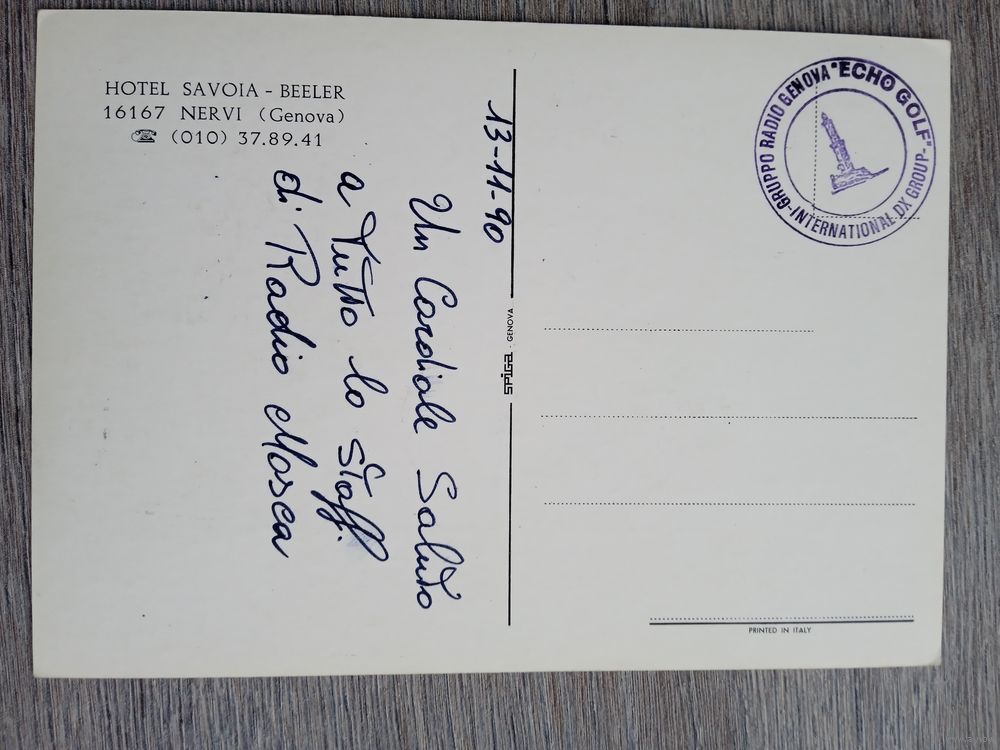 HOTEL SAVOIA - BEELER
16167 NERVI (Genova)
☎ (010) 37.89.41
13-11-90
Un Cordiale Saluto
a Tutto lo Staff.
di Radio Mosca
SPIGA - GENOVA
GRUPPO RADIO GENOVA "ECHO GOLF"
-INTERNATIONAL DX GROUP-
PRINTED IN ITALY